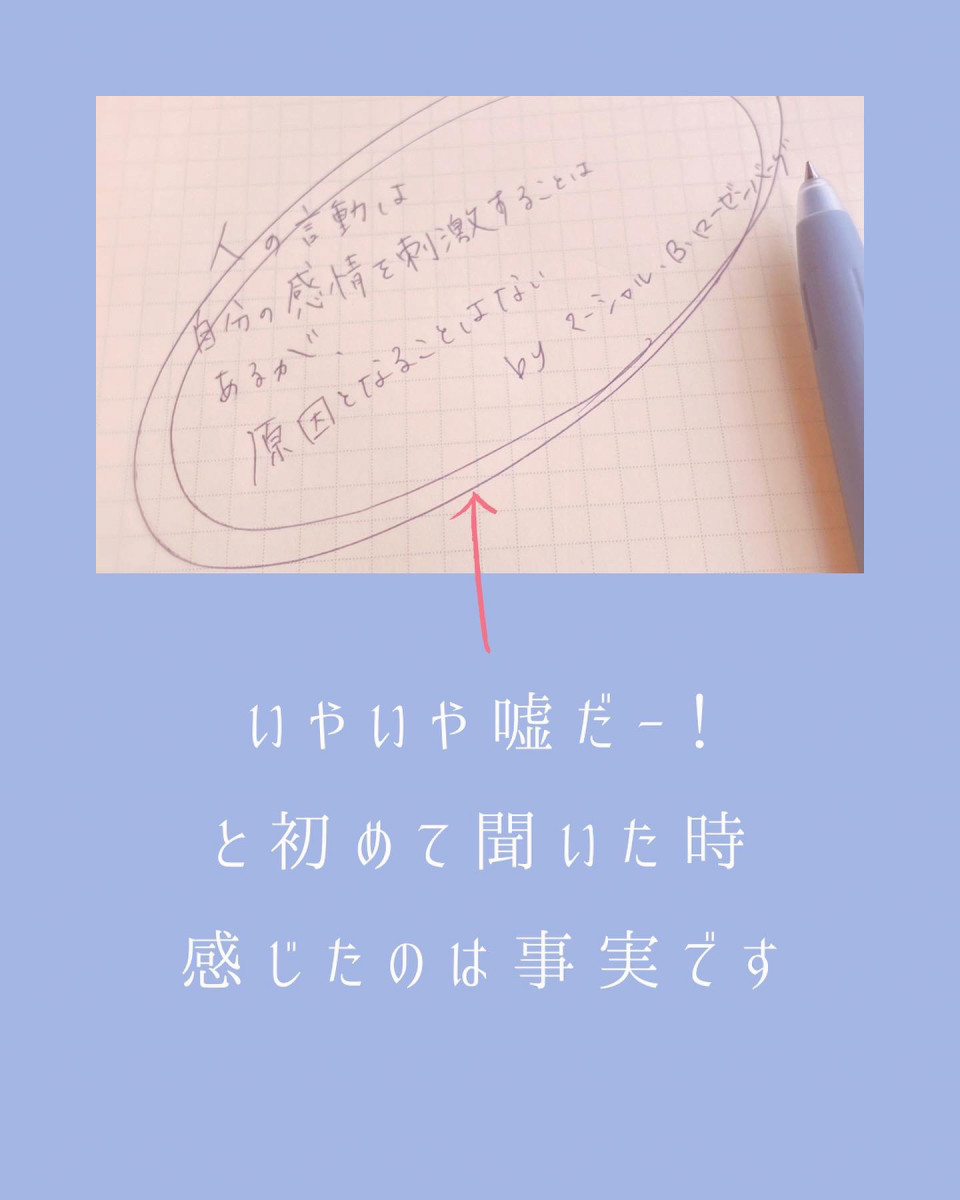 人の言動は
自分の感情を刺激することは
あるが、
原因となることはない
by マーシャル・B・ローゼンバーグ
いやいや嘘だー!
と初めて聞いた時
感じたのは事実です